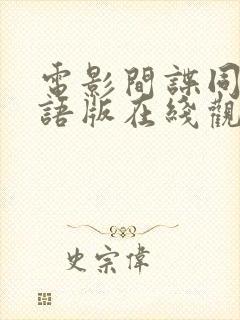 電影間諜同
語版在綫觀
史宗偉